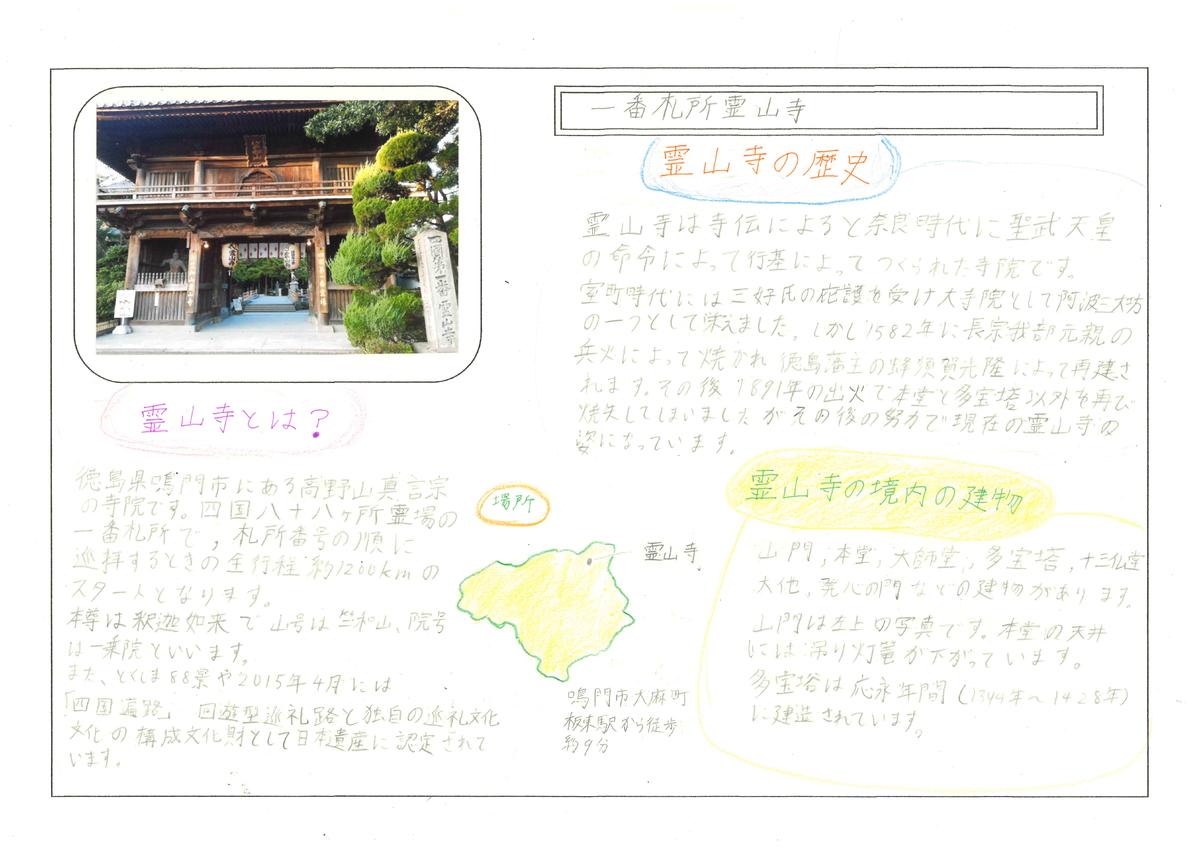 一番札所霊山寺
四国第一番霊山寺
霊山寺とは?
徳島県鳴門市にある高野山真言宗
の寺院です。四国八十八ヶ所霊場の
一番札所で,札所番号の順に
巡拝するときの全行程約1200kmの
スタートとなります。
本尊は釈迦如来で山号は竺和山、院号
は一乗院といいます。
また、とくしま88景や2015年4月には
「四国遍路」回遊型巡礼路と独自の巡礼文化
文化の構成文化財として日本遺産に認定されて
います。
霊山寺の歴史
霊山寺は寺伝によると奈良時代に聖武天皇
の命令によって行基によってつくられた寺院です。
室町時代には三好氏の庇護を受け大寺院として阿波三大坊
の一つとして栄えました。しかし1582年に長宗我部元親の
兵火によって焼かれ徳島藩主の蜂須賀光隆によって再建さ
れます。その後1891年の出火で本堂と多宝塔以外を再び
焼失してしまいましたがその後の努力で現在の霊山寺の
姿になっています。
場所
霊山寺
鳴門市大麻町
板東駅から徒歩
約9分
霊山寺の境内の建物
山門,本堂,大師堂,多宝塔,十三仏堂
大池,発心の門などの建物があります。
山門は左上の写真です。本堂の天井
には吊り灯篭が下がっています。
多宝塔は応永年間(1394年~1428年)
に建造されています。